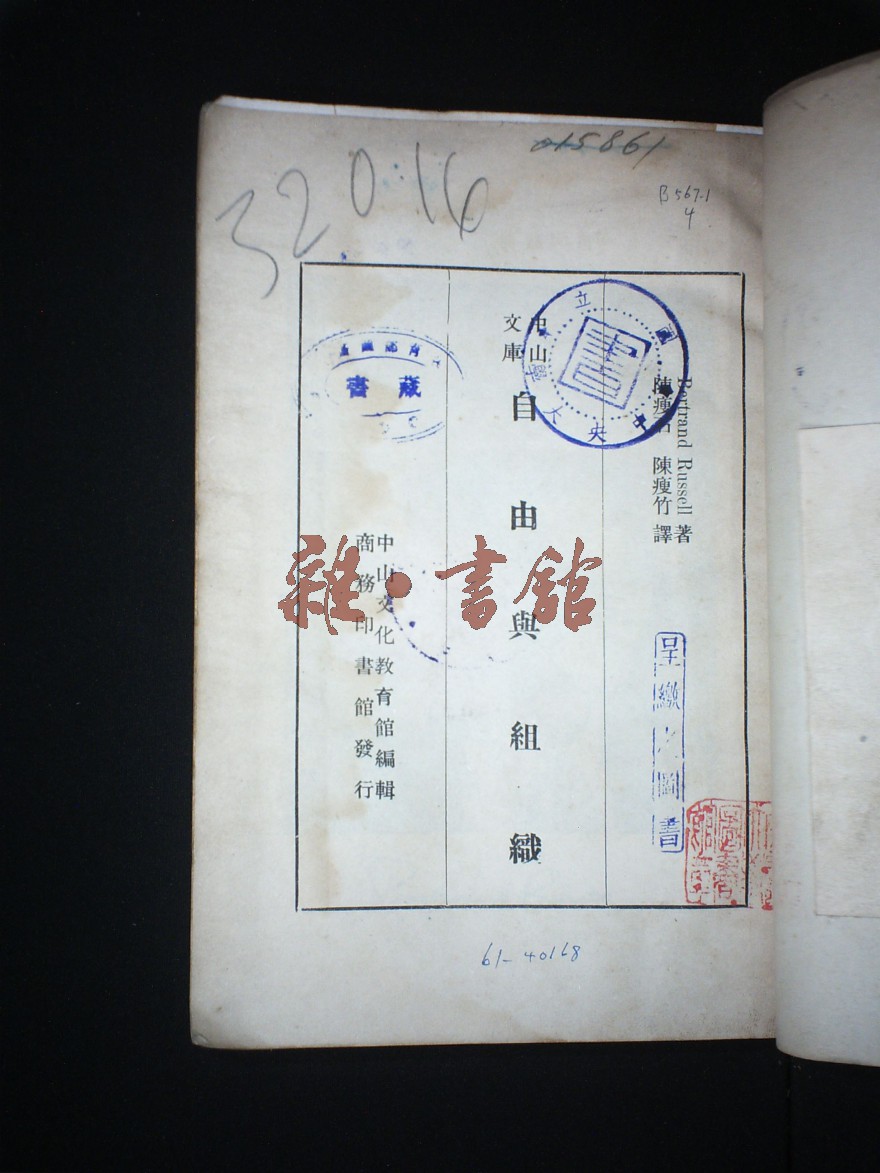 32016
015861
B 567-1
4
Bertrand Russell 著
陳瘦石 陳瘦竹 譯
中山
文庫
自由與組織
中山文化教育館編輯
商務印書館發行
國立中央大學
書
藏書
呈繳之圖書
雜·書館
61-40168